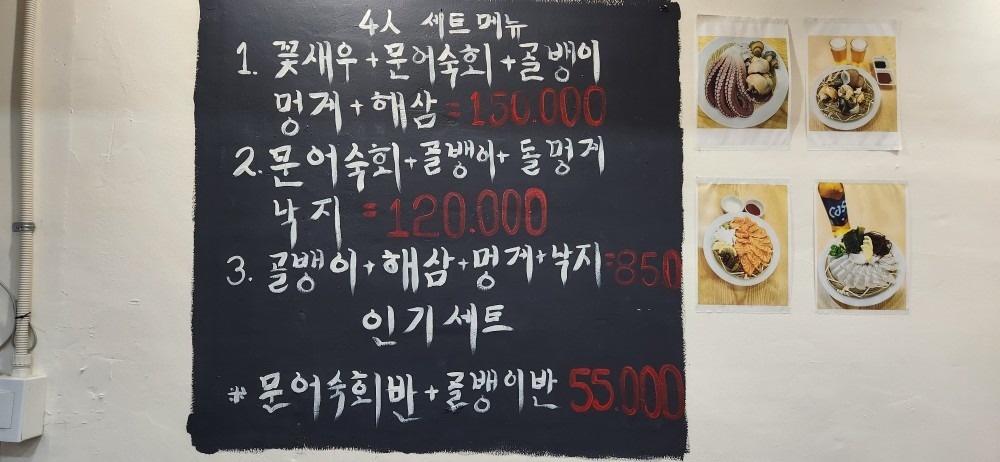 4人 세트메뉴
1. 꽃새우+문어숙회+골뱅이
멍게+해삼=150.000
2. 문어숙회+골뱅이+돌멍게
낙지=120.000
3. 골뱅이+해삼+멍게+낙지=850
인기세트
* 문어숙회반+골뱅이반 55.000